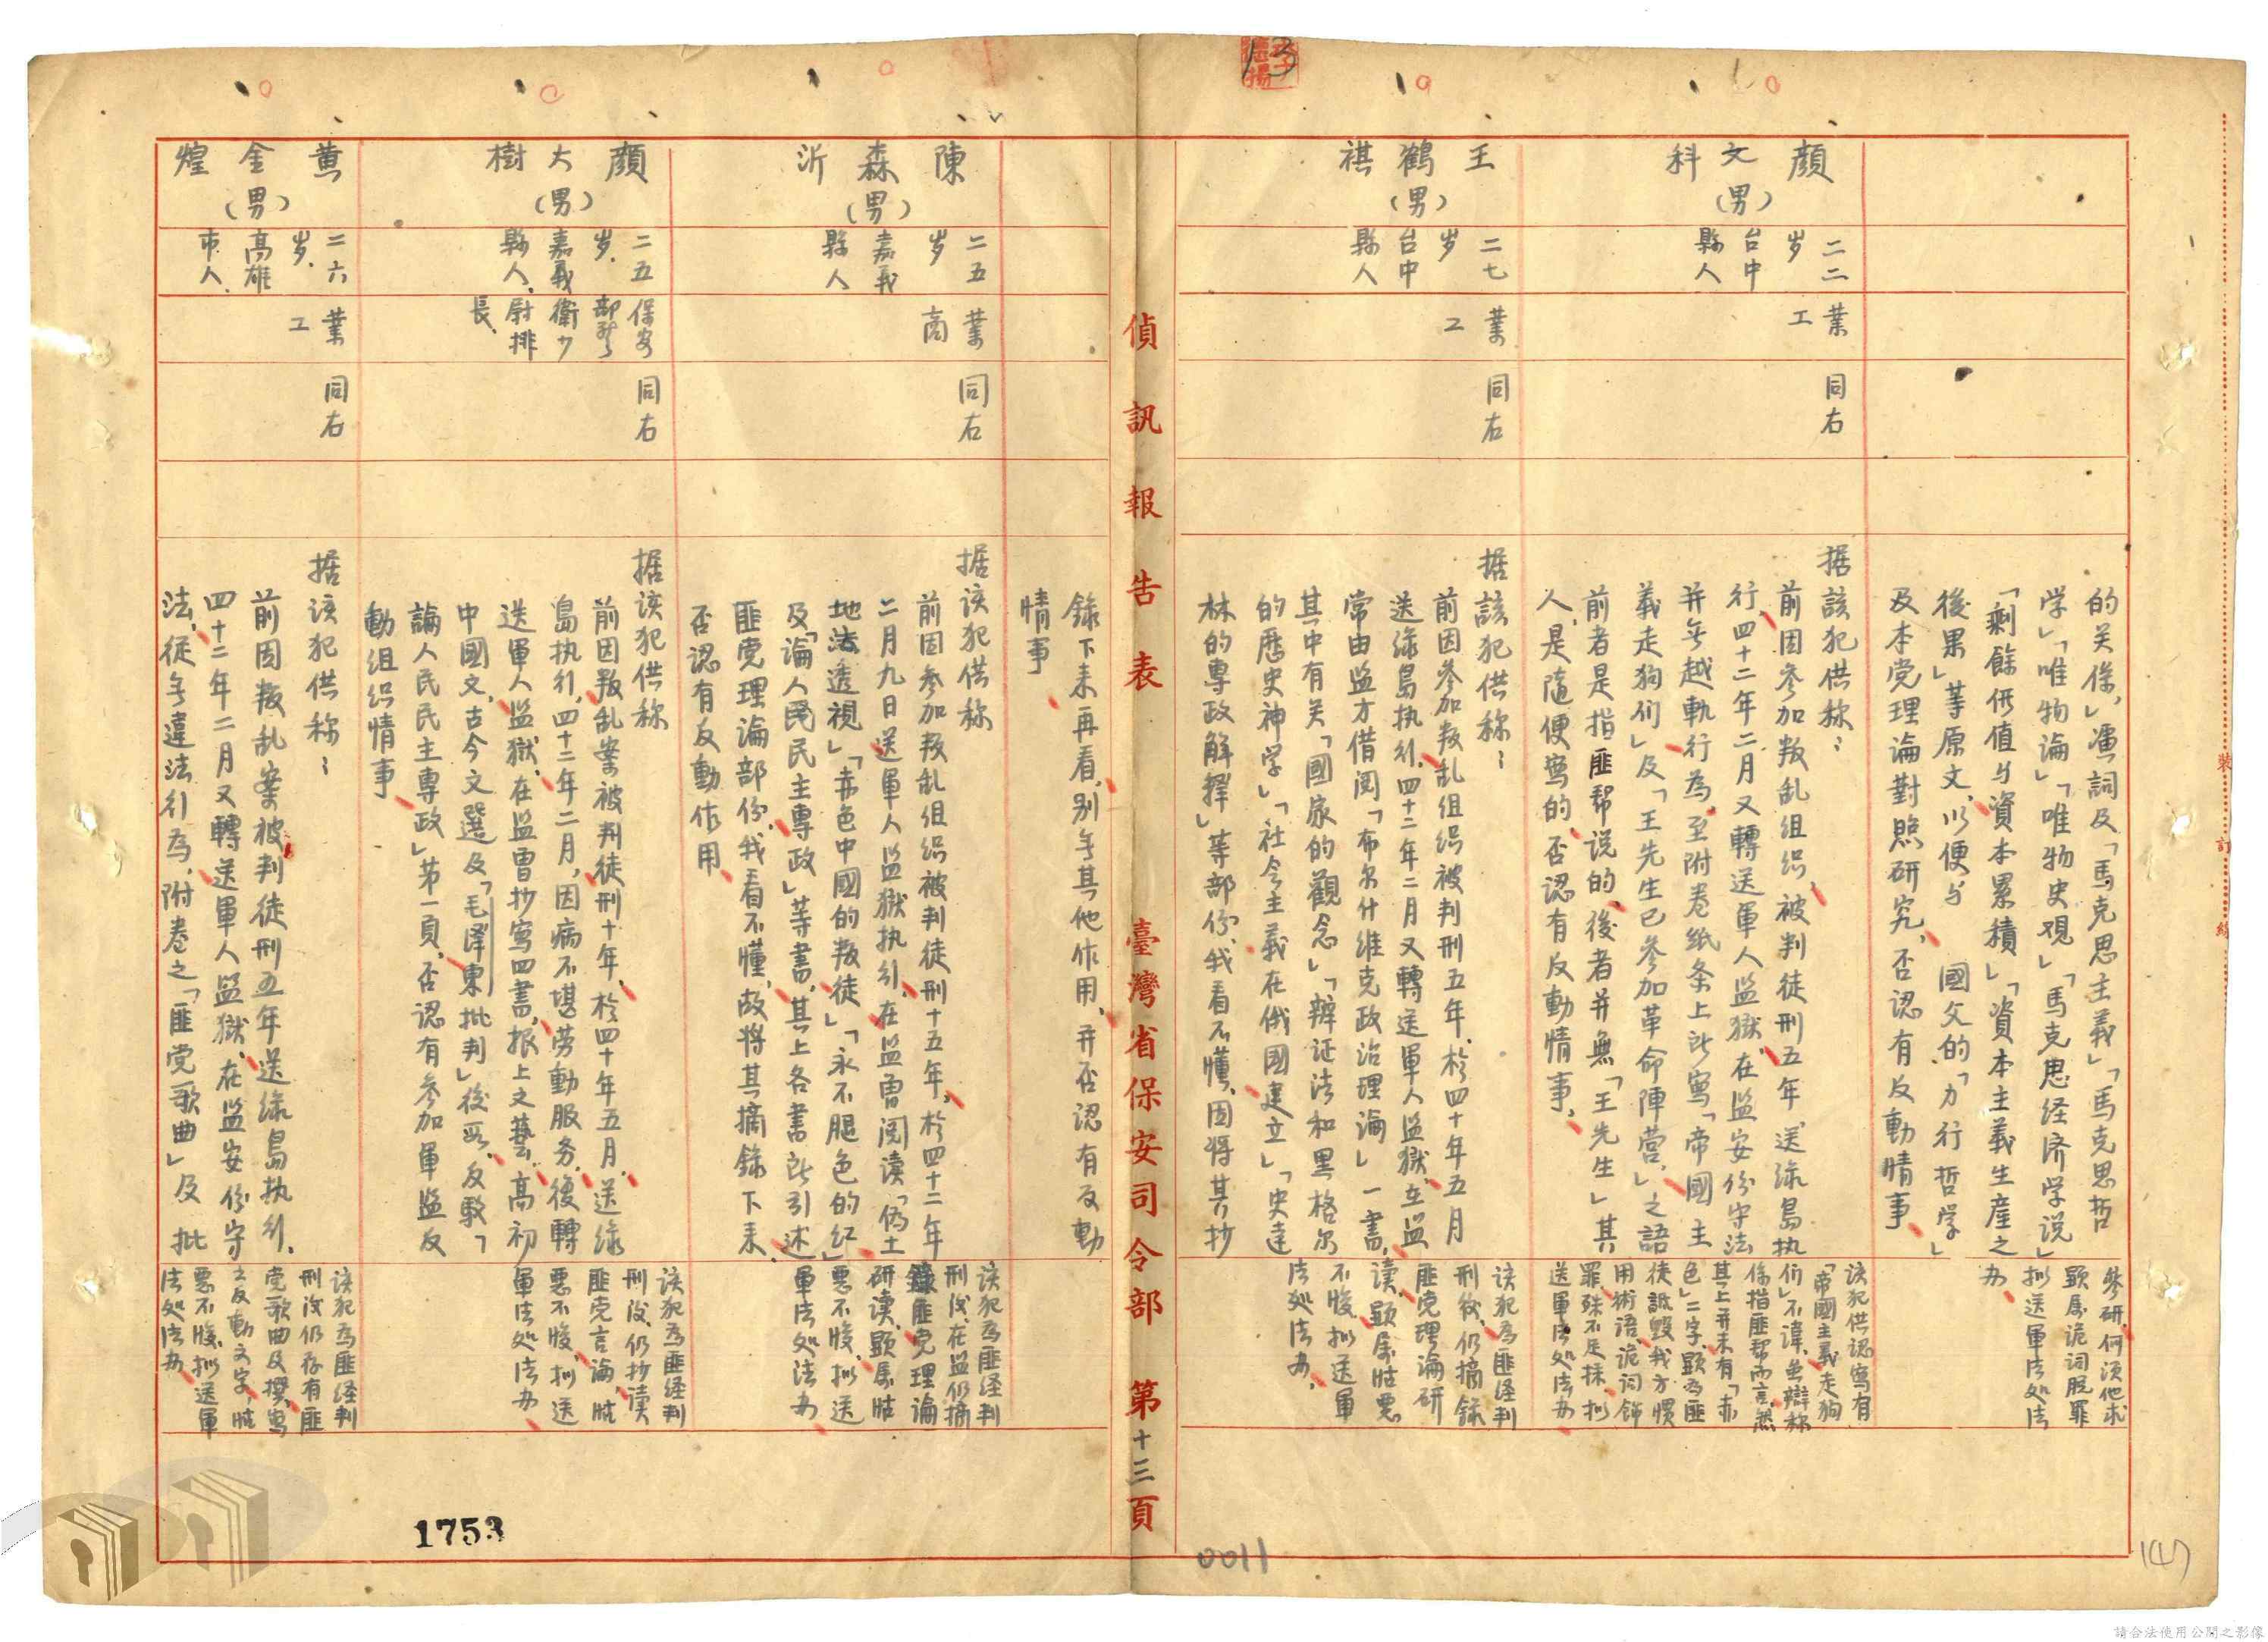 的关係,」演詞及「馬克思主義」「馬克思哲
学」「唯物論」「唯物史观」「馬克思经济学说」
「剩餘価值与資本累積」「資本主義生産之
後果」等原文,以便与 國父的「力行哲学」
及本党理論對照研究,否認有反動情事、
參研,何須他求
顕属詭詞脱罪
拟送軍法処法
办、
顏文科
(男)
二二
岁
台中
縣人
業
工
同右
据該犯供称:
前因参加叛乱組织,被判徒刑五年,送綠島执
行,四十二年二月又轉送軍人監獄,在監安份守法
并無越軌行為,至附卷纸条上所寫「帝國主
義走狗们」及「王先生已参加革命陣营」之語
前者是指匪帮说的,後者并無「王先生」其
人,是隨便寫的,否認有反動情事、
该犯供認寫有
「帝國主義走狗
们」不諱,並辯称
係指匪帮而言,然
其上并未有「赤
色」二字,顕為匪
徒詆毀我方慣
用術語,詭词飾
罪,殊不足採,拟
送軍法処法办、
王鶴祺
(男)
二七
岁
台中
縣人
業
工
同右
据該犯供称:
前因参加叛乱組织被判刑五年,於四十年五月
送綠島执行,四十二年二月又轉送軍人監獄,在監
常由監方借閱「布尔什維克政治理論」一書,
其中有关「國家的觀念」「辯证法和黑格尔
的歷史神学」「社会主義在俄國建立」「史達
林的專政解釋」等部份,我看不懂,因將其抄
该犯為匪经判
刑後,仍摘錄
匪党理論研
读,顕属怙惡
不悛,拟送軍
法処法办、
偵訊報告表 臺灣省保安司令部 第十三頁
錄下来再看,别無其他作用,并否認有反動
情事、
陳森沂
(男)
二五
岁
嘉義
縣人
業
商
同右
据该犯供称
前因参加叛乱組织被判徒刑十五年,於四十二年
二月九日送軍人監獄执行,在監曾閱读「伪土
地法透視」「赤色中國的叛徒」「永不腿色的红」
及「論人民民主專政」等書,其上各書所引述
匪党理論部份,我看不懂,故將其摘錄下来,
否認有反動作用、
该犯為匪经判
刑後,在監仍摘
錄匪党理論
研读,顕属怙
惡不悛,拟送
軍法处法办
顏大樹
(男)
二五
岁,
嘉義
縣人,
保安
部警
衛少
尉排
長、
同右
据该犯供称
前因叛乱案被判徒刑十年,於四十年五月,送綠
島执行,四十二年二月,因病不堪劳動服务,後轉
送軍人監獄,在監曾抄寫四書,报上文藝,高初
中國文,古今文選及「毛澤東批判」後所,反駁「
論人民民主專政」第一頁,否認有参加軍監反
動組织情事、
该犯為匪经判
刑後,仍抄读
匪党言論,怙
惡不悛,拟送
軍法処法办、
黄金煌
(男)
二六
岁,
高雄
市人、
業
工
同右
据该犯供称:
前因叛乱案被判徒刑五年送綠島执行,
四十二年二月又轉送軍人監獄,在監安份守
法,從無違法行為,附卷之「匪党歌曲」及 批
该犯為匪经判
刑後仍存有匪
党歌曲及撰寫
之反動文字,怙
惡不悛,拟送軍
法処法办、
13
1753
0011
147
裝訂線
請合法使用公開之影像